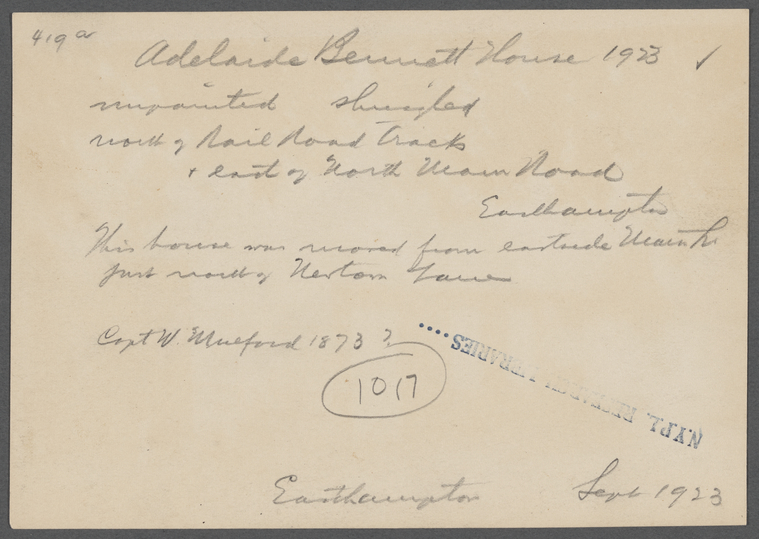 419 a
Adelaide Bennett House 1923 ✓
unpainted shingled
north of Rail Road Tracks
+ east of North Main Road
Easthampton
This house was moved from eastside Main St
just north of Newtown Lane
Capt W. Mulford 1873 ?
1017
N.Y.P.L. RESEARCH LIBRARIES
Easthampton Sept 1923